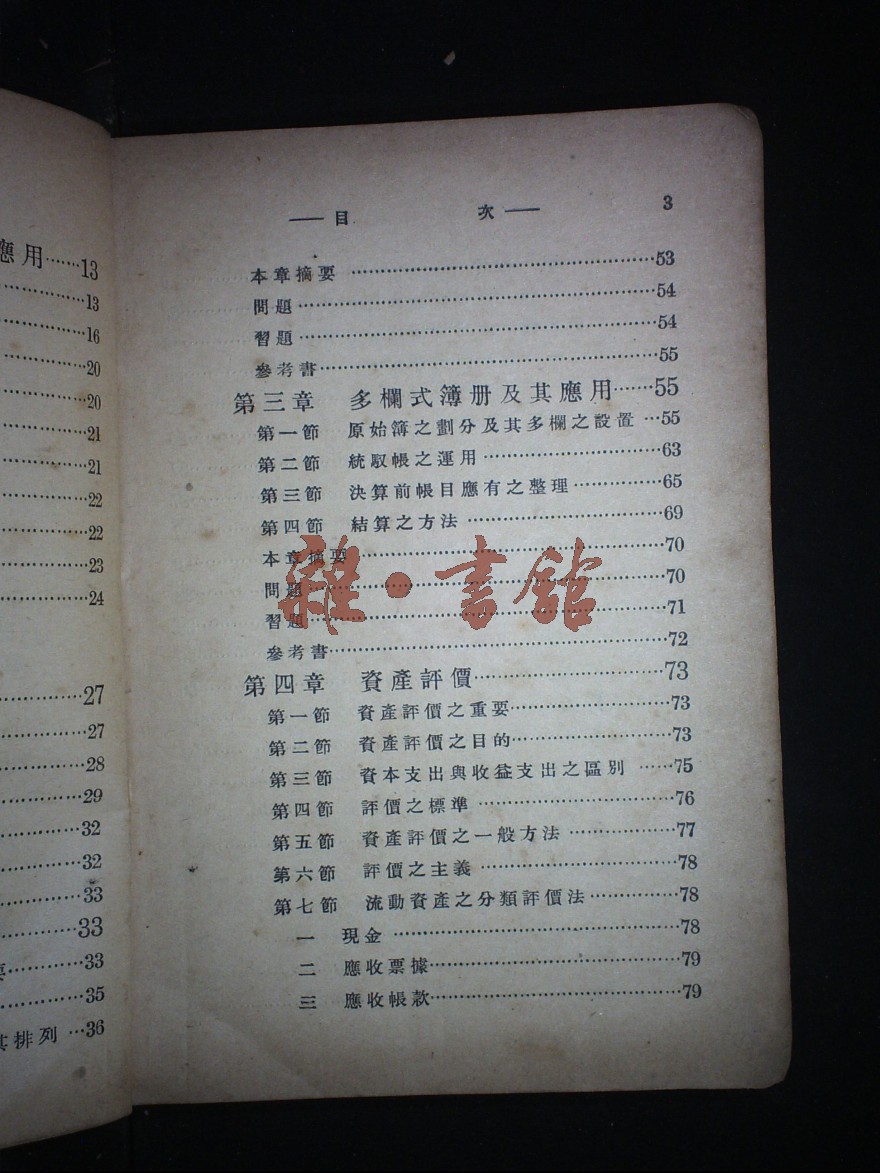 應用……13
……13
……16
……20
……20
……21
……21
……22
……22
……23
……24
……27
……27
……28
……29
……32
……32
……33
……33
……33
……35
其排列…36
——目 次—— 3
本章摘要……53
問題……54
習題……54
參考書……55
第三章 多欄式簿册及其應用……55
第一節 原始簿之劃分及其多欄之設置…55
第二節 統馭帳之運用……63
第三節 決算前帳目應有之整理……65
第四節 結算之方法……69
本章摘要……70
問題……70
習題……71
參考書……72
第四章 資產評價……73
第一節 資產評價之重要……73
第二節 資產評價之目的……73
第三節 資本支出與收益支出之區別……75
第四節 評價之標準……76
第五節 資產評價之一般方法……77
第六節 評價之主義……78
第七節 流動資產之分類評價法……78
一 現金……78
二 應收票據……79
三 應收帳款……79
雜·書館